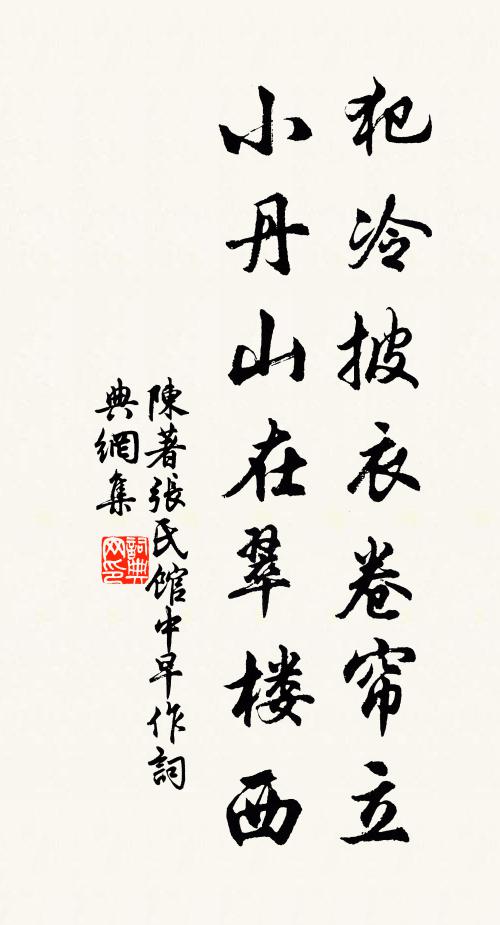 犯冷披衣卷帘立
小丹山在翠楼西
陳著張民館中早作詞
典網集
詞典
网印